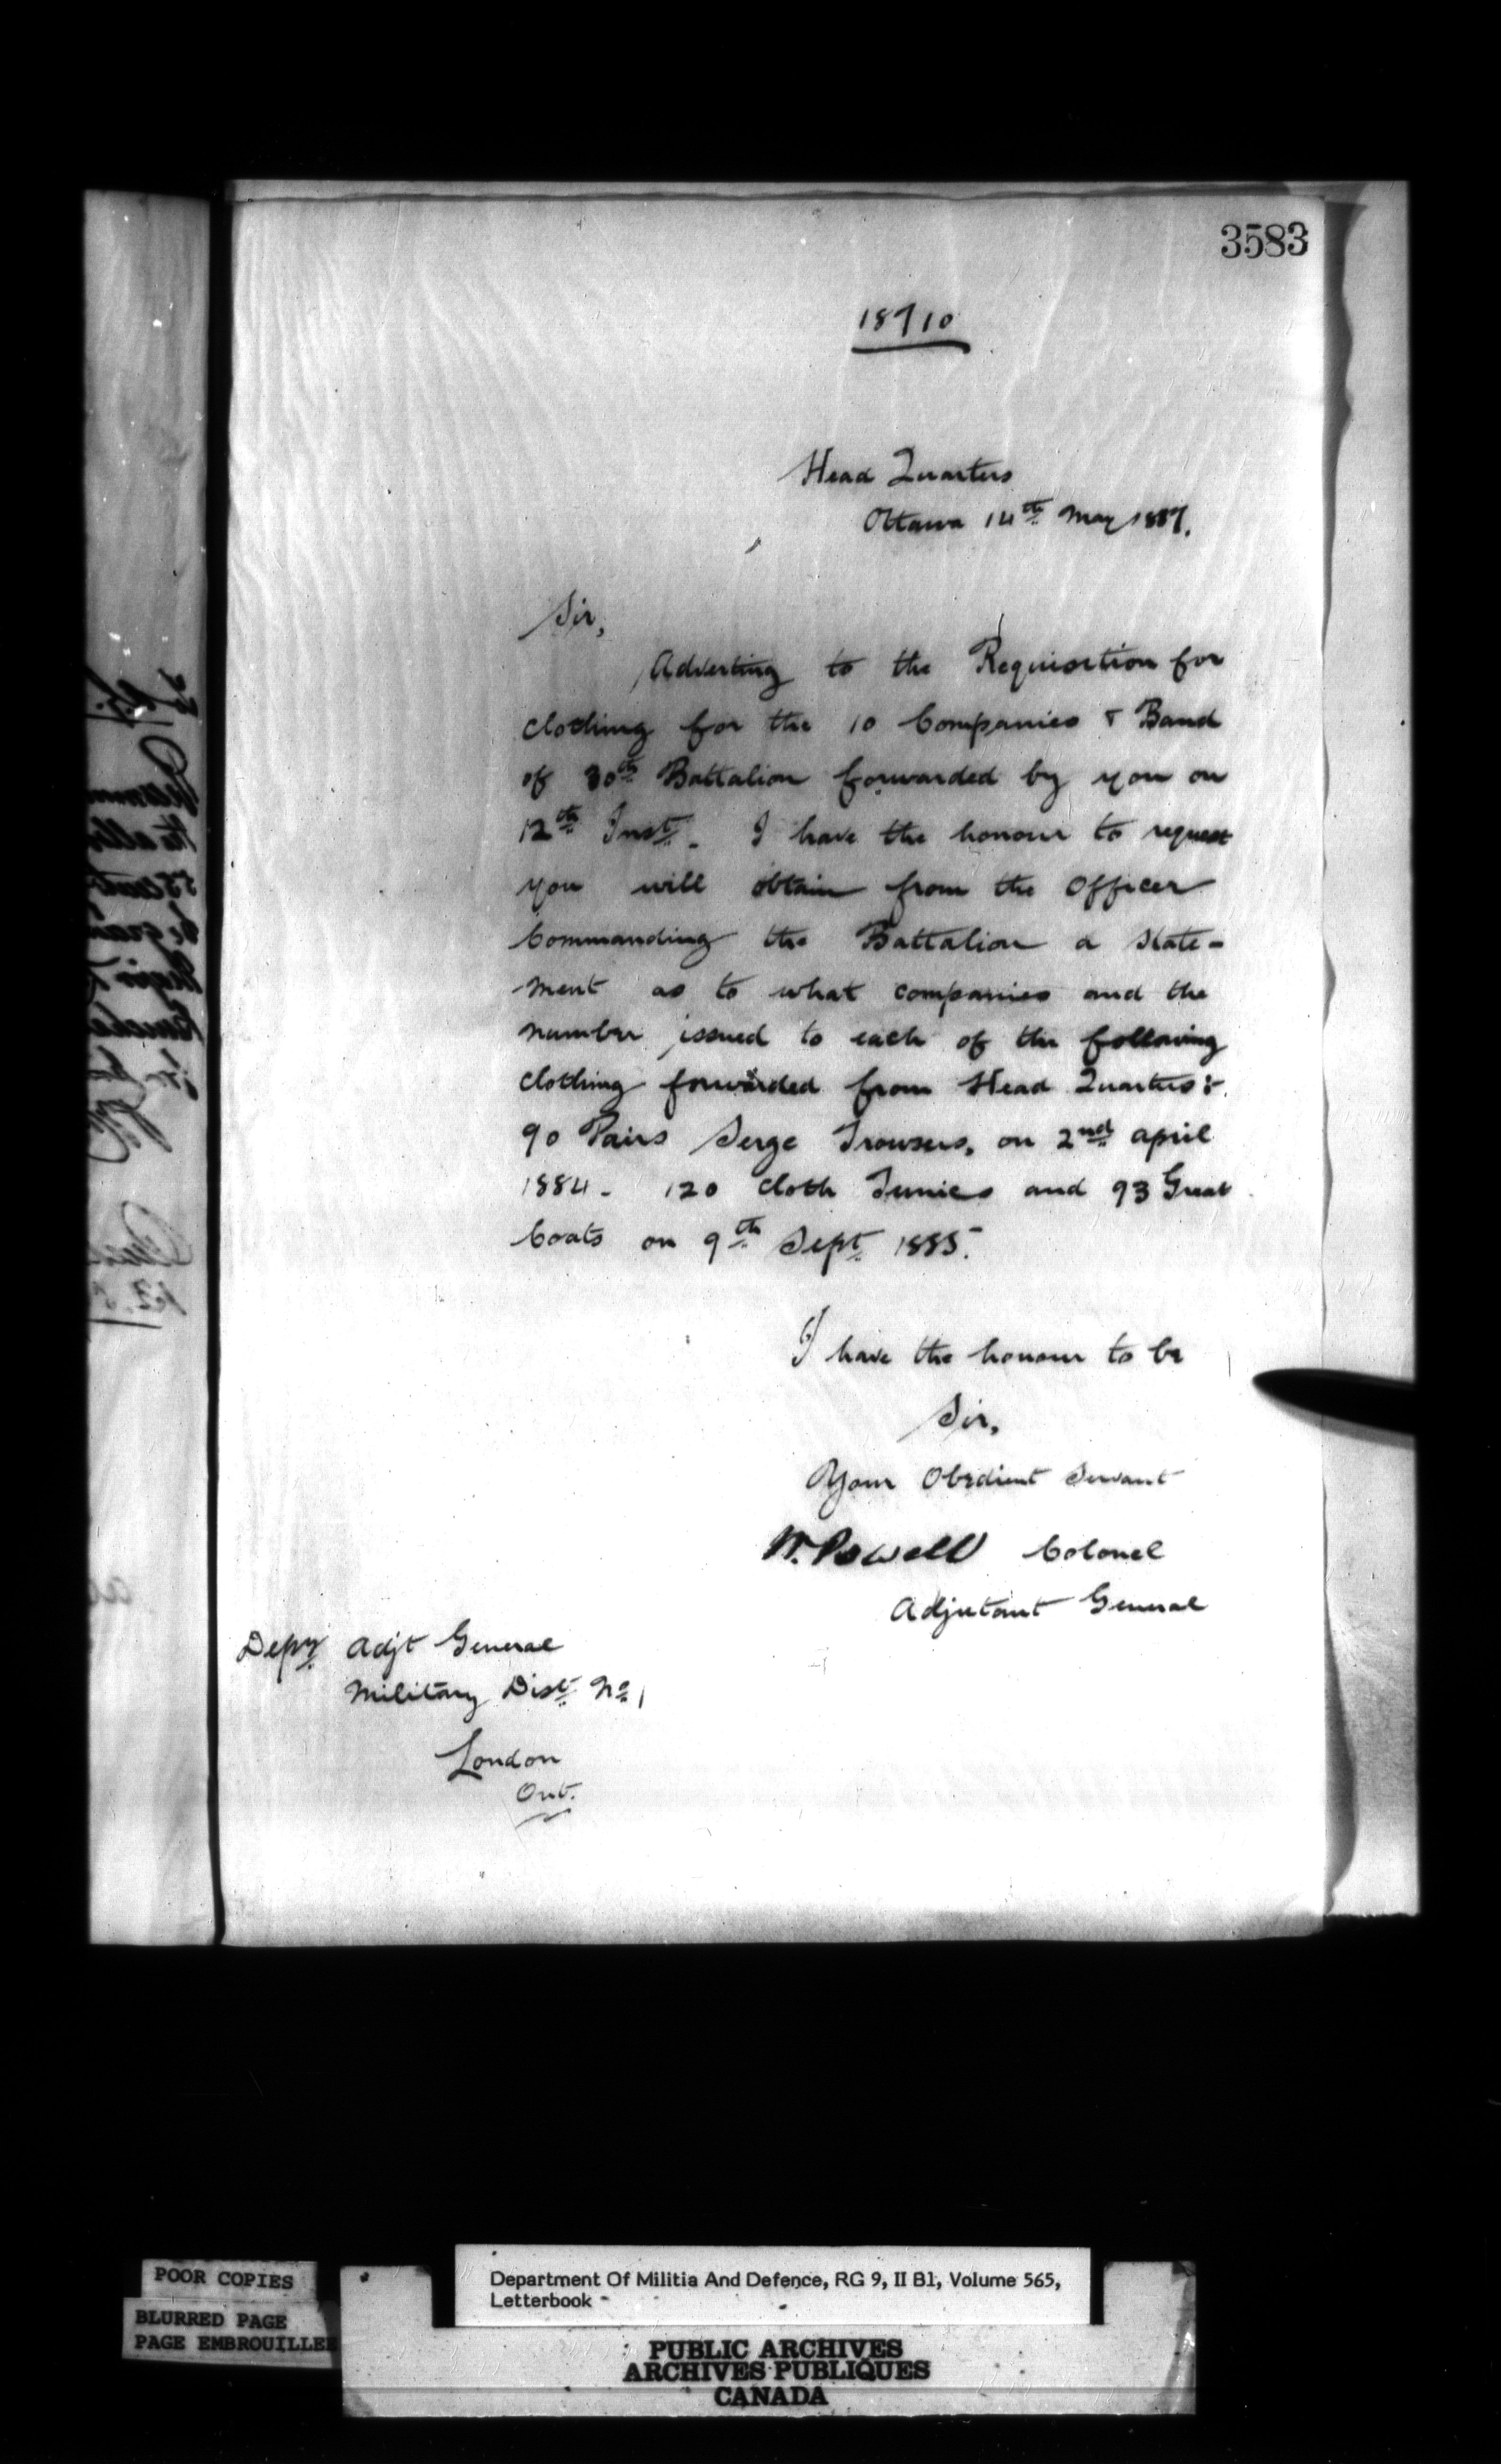 3583
18710
Head Quarters
Ottawa 14th May 1887.
Sir,
Adverting to the Requisition for
clothing for the 10 Companies & Band
of 30th Battalion forwarded by you on
12th Inst. I have the honour to request
you will obtain from the Officer
Commanding the Battalion a state-
ment as to what companies and the
number issued to each of the following
clothing forwarded from Head Quarters:-
90 Pairs Serge Trowsers, on 2nd april
1884. 120 cloth Tunics and 93 Great
Coats on 9th Sept 1885.
I have the honour to be
Sir,
Your Obedient Servant
W. Powell Colonel
Adjutant General
Depy Adjt General
Military Dist No 1
London
Ont.
POOR COPIES
BLURRED PAGE
PAGE EMBROUILLEE
Department Of Militia And Defence, RG 9, II B1, Volume 565,
Letterbook -
PUBLIC ARCHIVES
ARCHIVES PUBLIQUES
CANADA